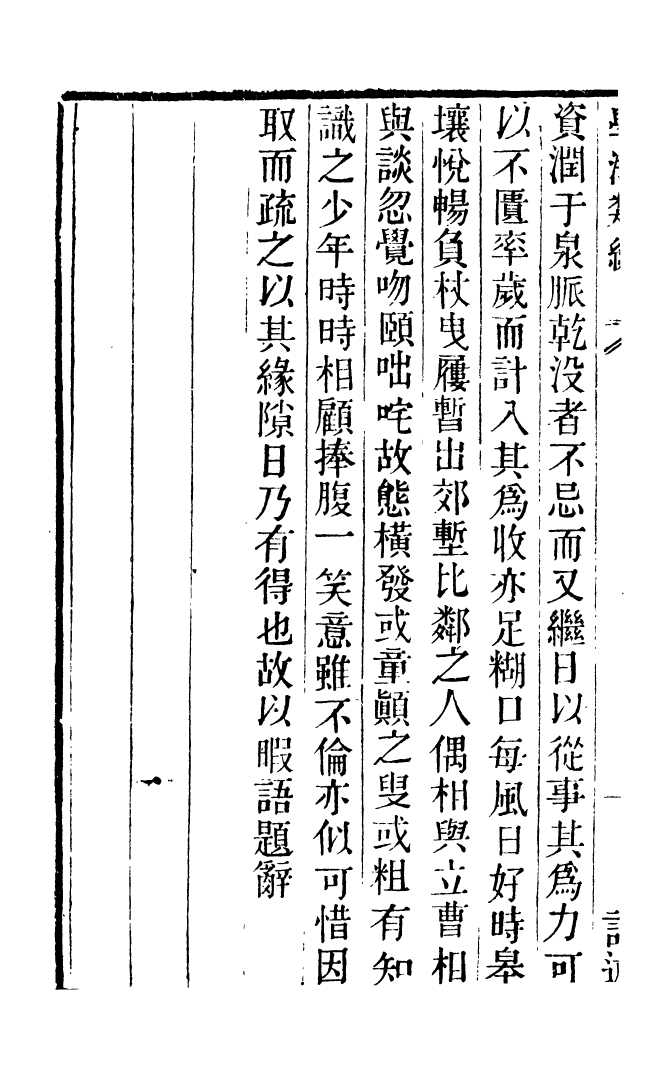 資潤于泉脈乾没者不忌而又繼日以從事其爲力可
以不匱率歲而計入其爲收亦足糊口每風日好時皋
壤悅暢負杖曳屨暫出郊塹比鄰之人偶相與立曹相
與談忽覺吻頤咄咤故態橫發或童顚之叟或粗有知
識之少年時時相顧捧腹一笑意雖不倫亦似可惜因
取而疏之以其緣隙日乃有得也故以暇語題辭